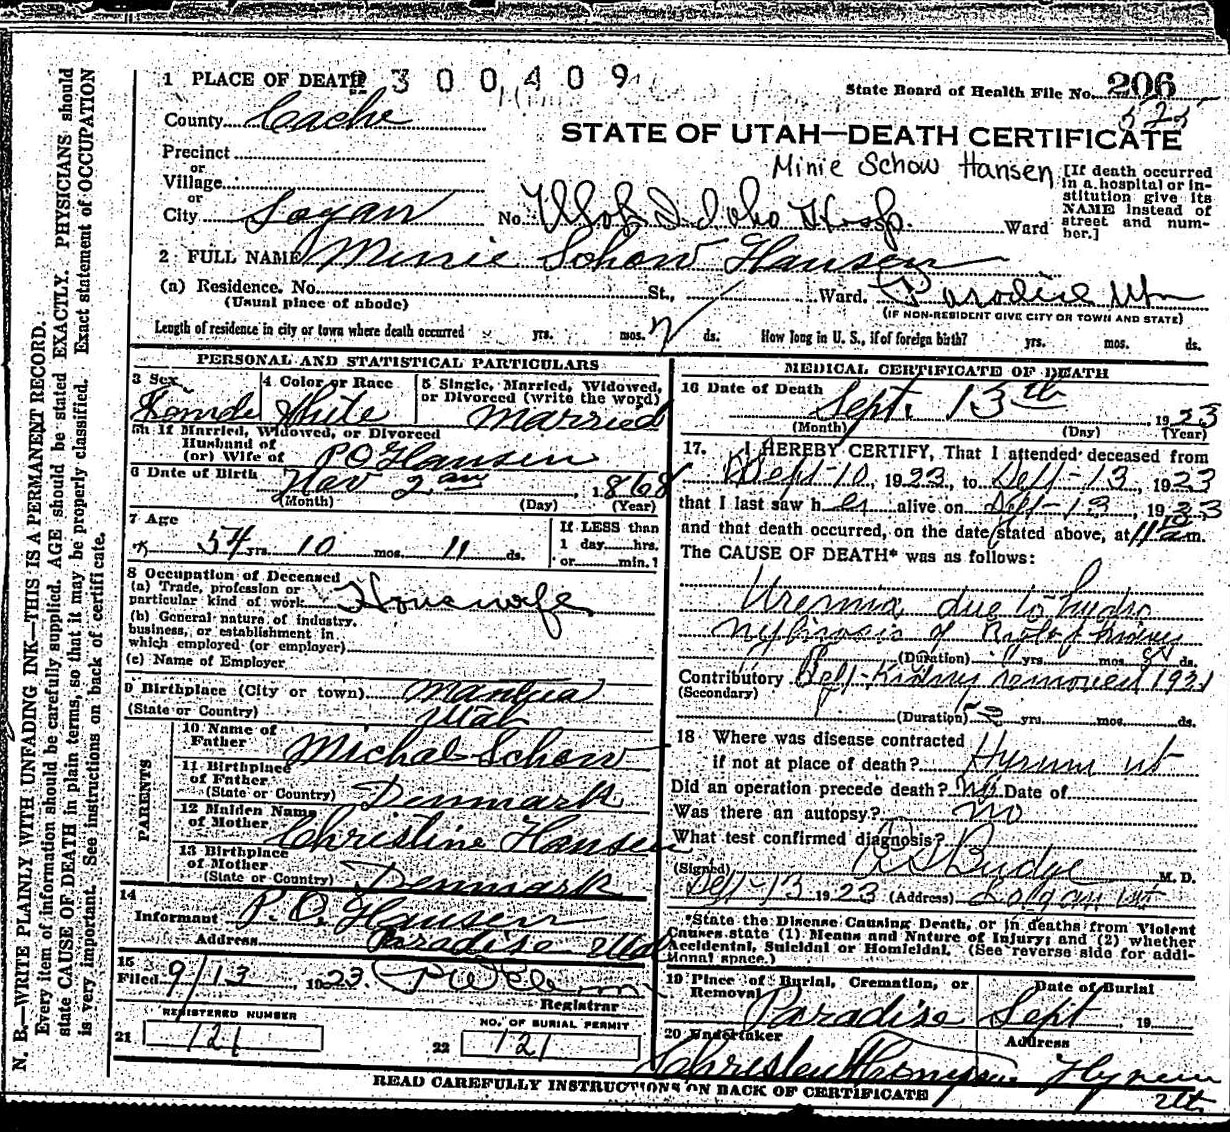 1 PLACE OF DEATH 2 3 0 0 4 0 9
State Board of Health File No. 206
525
County Cache
STATE OF UTAH—DEATH CERTIFICATE
Minie Schow Hansen
Precinct
or
Village
or
City Logan No. Utah Idaho Hosp. Ward
[If death occurred in a hospital or in-
stitution give its
NAME instead of
street and num-
ber.]
2 FULL NAME Minie Schow Hansen
(a) Residence. No. St., Ward. Paradise Utah
(Usual place of abode) (IF NON-RESIDENT GIVE CITY OR TOWN AND STATE)
Length of residence in city or town where death occurred yrs. mos. ds. How long in U. S., if of foreign birth? yrs. mos. ds.
PERSONAL AND STATISTICAL PARTICULARS
3 Sex Female
4 Color or Race White
5 Single, Married, Widowed,
or Divorced (write the word)
Married
5a If Married, Widowed, or Divorced
Husband of
(or) Wife of P O Hansen
6 Date of Birth Nov 2 1868
(Month) (Day) (Year)
7 Age 54 yrs. 10 mos. 11 ds.
If LESS than
1 day......hrs.
or......min.?
8 Occupation of Deceased
(a) Trade, profession or
particular kind of work Housewife
(b) General nature of industry,
business, or establishment in
which employed (or employer)
(c) Name of Employer
9 Birthplace (City or town) Mantua
(State or Country) Utah
PARENTS
10 Name of
Father Michal Schow
11 Birthplace
of Father
(State or Country) Denmark
12 Maiden Name
of Mother Christine Hansen
13 Birthplace
of Mother
(State or Country) Denmark
14
Informant P. O. Hansen
Address Paradise Utah
15
Filed 9/13 1923
Registrar
REGISTERED NUMBER
21 121
NO. OF BURIAL PERMIT
22 121
MEDICAL CERTIFICATE OF DEATH
16 Date of Death Sept. 13th 1923
(Month) (Day) (Year)
17. I HEREBY CERTIFY, That I attended deceased from
Sept-10, 1923, to Sept-13, 1923
that I last saw her alive on Sept-13, 1923
and that death occurred, on the date stated above, at 11 10 a m.
The CAUSE OF DEATH* was as follows:
Uremia due to hydro
nephrosis of Right kidney
(Duration) yrs. mos. ds.
Contributory Left-Kidney removed 1921
(Secondary)
(Duration) 2 yrs. mos. ds.
18 Where was disease contracted
if not at place of death? Hyrum ut
Did an operation precede death? no Date of
Was there an autopsy? no
What test confirmed diagnosis?
(Signed) Budge M. D.
Sept-13 1923 (Address) Logan ut
*State the Disease Causing Death, or in deaths from Violent
Causes state (1) Means and Nature of Injury; and (2) whether
Accidental, Suicidal or Homicidal. (See reverse side for addi-
tional space.)
19 Place of Burial, Cremation, or
Removal Paradise
Date of Burial
Sept 19
20 Undertaker
Address
Hyrum
Utah
READ CAREFULLY INSTRUCTIONS ON BACK OF CERTIFICATE
N. B.—WRITE PLAINLY WITH UNFADING INK—THIS IS A PERMANENT RECORD.
Every item of information should be carefully supplied. AGE should be stated EXACTLY. PHYSICIANS should
state CAUSE OF DEATH in plain terms, so that it may be properly classified. Exact statement of OCCUPATION
is very important. See instructions on back of certificate.